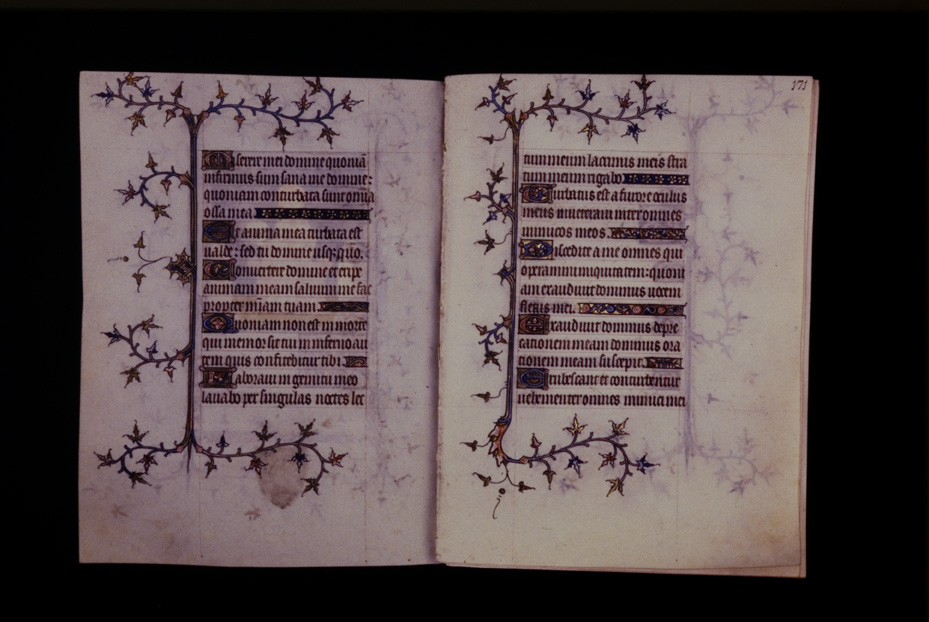 Miserere mei domine quoniã
infirmus sum sana me domine:
quoniam conturbata sunt omnia
ossa mea.
Et anima mea turbata est
ualde: sed tu domine usq̃quo.
Conuertere domine et eripe
animam meam saluum me fac
propter m̃iam tuam.
Quoniam non est in morte
qui memor sit tui in inferno au
tem quis confitebitur tibi.
Laboraui in gemitu meo
lauabo per singulas noctes lec
171
tum meum lacrimis meis stra
tum meum rigabo.
Turbatus est a furore oculus
meus inueteraui inter omnes
inimicos meos.
Discedite a me omnes qui
operamini iniquitatem: quoni
am exaudiuit dominus uocem
fletus mei.
Exaudiuit dominus depre
cationem meam dominus ora
tionem meam suscepit.
Erubescant et conturbentur
uehementer omnes inimici mei